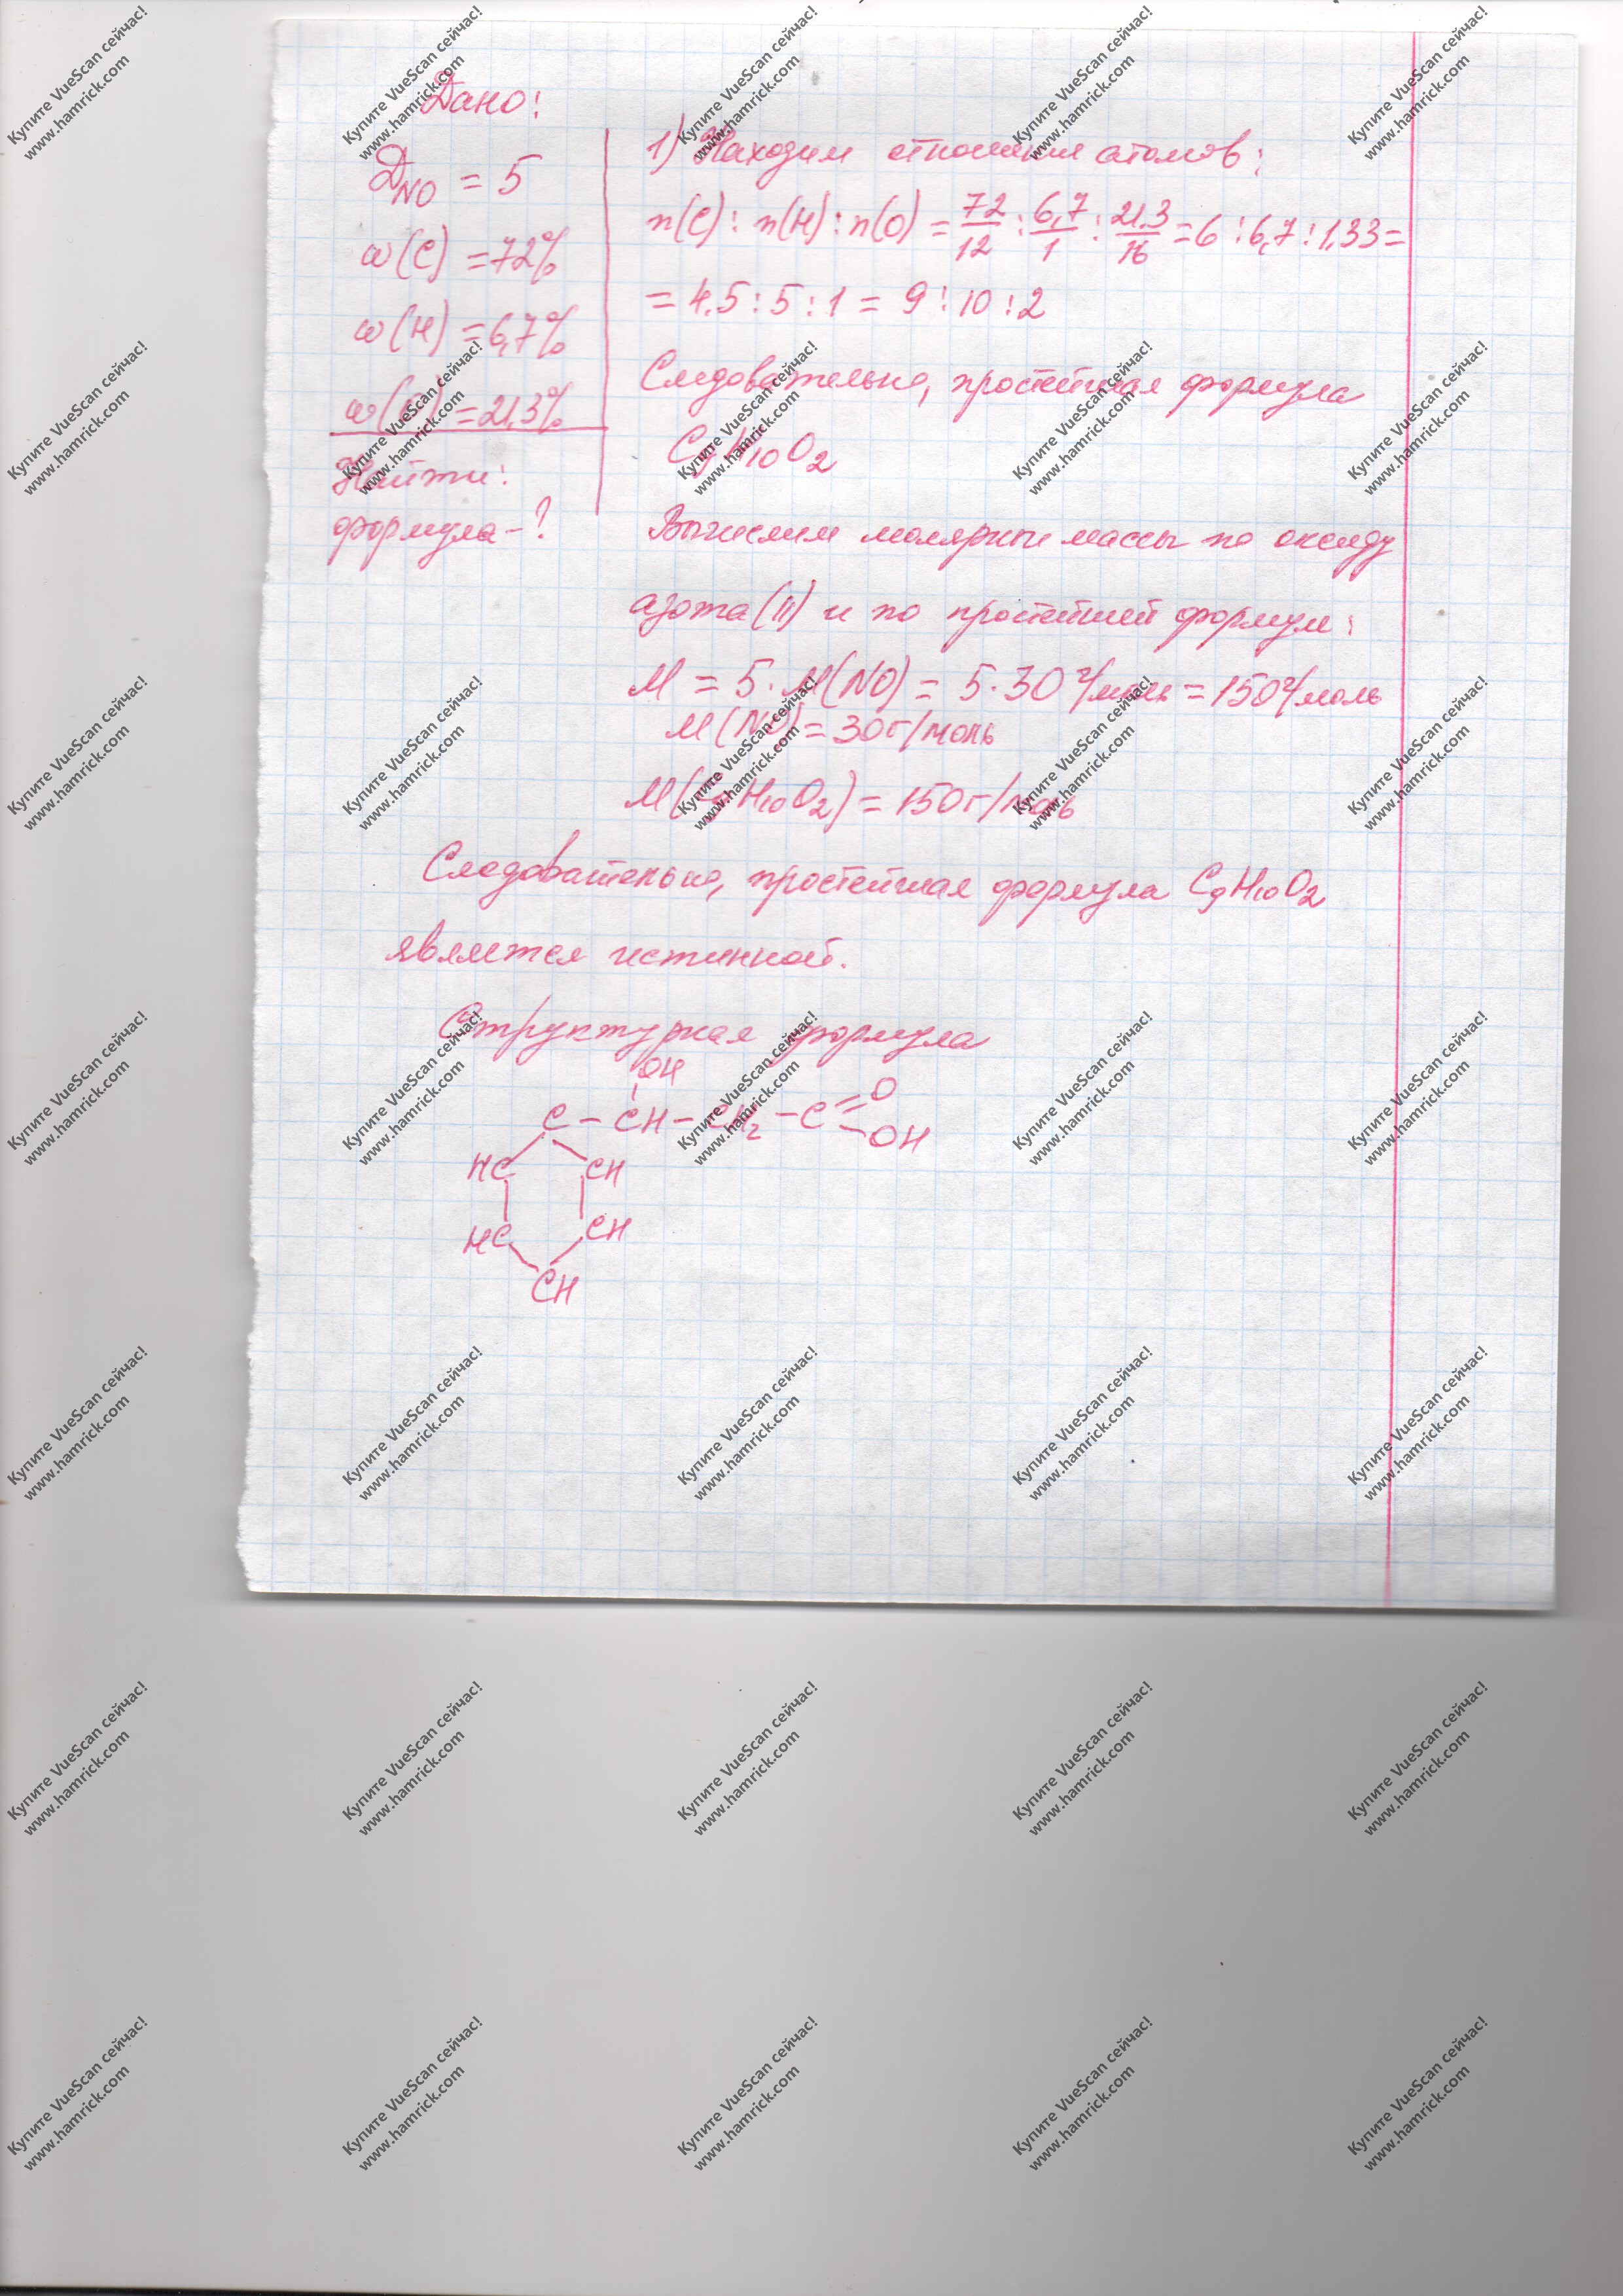 Дано:
D_NO = 5
ω(C) = 72%
ω(H) = 6,7%
ω(O) = 21,3%
Найти:
формула - ?
1) Находим отношения атомов:
n(C) : n(H) : n(O) = 72/12 : 6,7/1 : 21,3/16 = 6 : 6,7 : 1,33 =
= 4.5 : 5 : 1 = 9 : 10 : 2
Следовательно, простейшая формула
C₉H₁₀O₂
Вычислим молярные массы по оксиду
азота (II) и по простейшей формуле:
M = 5 · M(NO) = 5 · 30 г/моль = 150 г/моль
M(NO) = 30 г/моль
M(C₉H₁₀O₂) = 150 г/моль
Следовательно, простейшая формула C₉H₁₀O₂
является истинной.
Структурная формула
OH
C - CH - CH₂ - C = O
- OH
HC CH
HC CH
CH
Купите VueScan сейчас!
www.hamrick.com